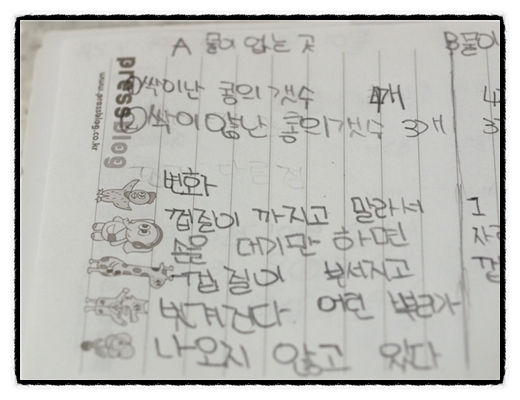 A 물이 없는 곳
B 물이
①싹이난 콩의 갯수 4개
4
②싹이 않난 콩의 갯수 3개
3
변화
껍질이 까지고 말라서
1
손을 대기만 하면
자
껍질이 부서지고
껍
벗겨진다 어린 뿌리가
나오지 않고 있다
pressblog
www.pressblog.co.kr